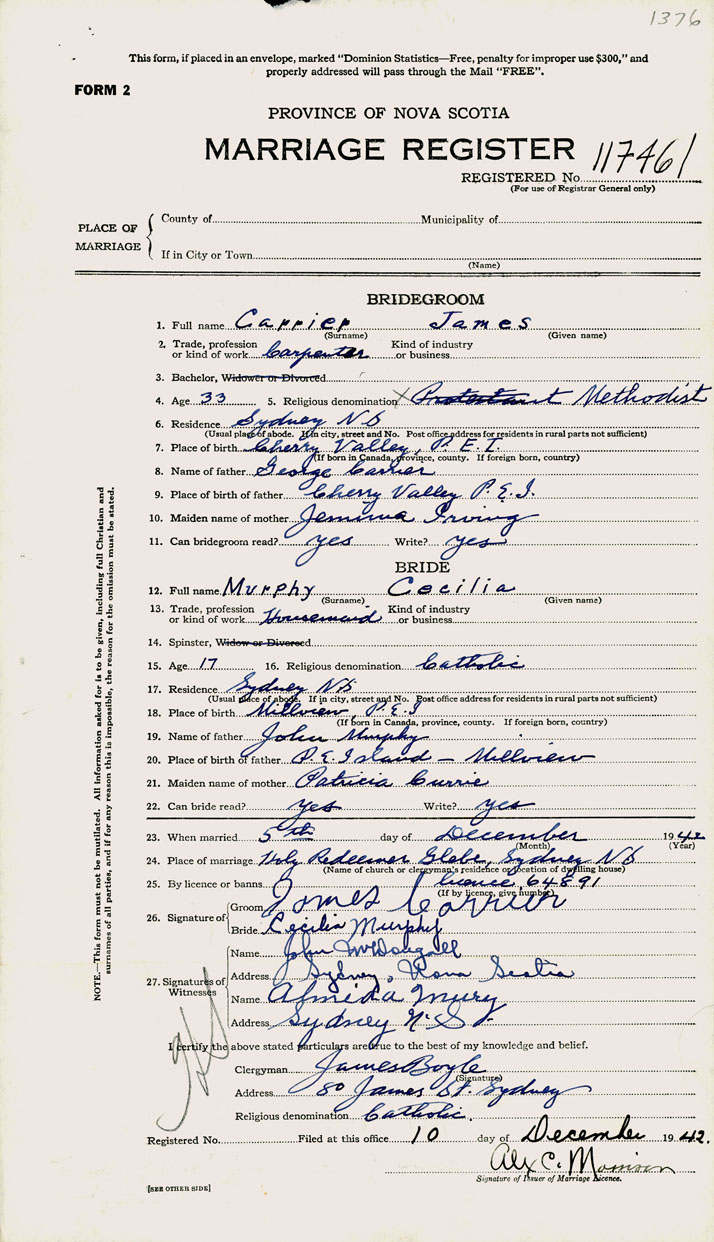 1376
This form, if placed in an envelope, marked "Dominion Statistics—Free, penalty for improper use $300," and
properly addressed will pass through the Mail "FREE".
FORM 2
PROVINCE OF NOVA SCOTIA
MARRIAGE REGISTER
REGISTERED No. 117461
(For use of Registrar General only)
PLACE OF MARRIAGE
County of Municipality of
If in City or Town
(Name)
BRIDEGROOM
1. Full name Carrier James
(Surname) (Given name)
2. Trade, profession or kind of work Carpenter Kind of industry or business
3. Bachelor, Widower or Divorced
4. Age 33 5. Religious denomination X Protestant Methodist
6. Residence Sydney NS
(Usual place of abode. If in city, street and No. Post office address for residents in rural parts not sufficient)
7. Place of birth Cherry Valley, P.E.I.
(If born in Canada, province, county. If foreign born, country)
8. Name of father George Carrier
9. Place of birth of father Cherry Valley P.E.I.
10. Maiden name of mother Jemima Irving
11. Can bridegroom read? yes Write? yes
BRIDE
12. Full name Murphy Cecilia
(Surname) (Given name)
13. Trade, profession or kind of work Housemaid Kind of industry or business
14. Spinster, Widow or Divorced
15. Age 17 16. Religious denomination Catholic
17. Residence Sydney NS
(Usual place of abode. If in city, street and No. Post office address for residents in rural parts not sufficient)
18. Place of birth Millview, P.E.I
(If born in Canada, province, county. If foreign born, country)
19. Name of father John Murphy
20. Place of birth of father P.E Island - Millview
21. Maiden name of mother Patricia Currie
22. Can bride read? yes Write? yes
23. When married 5th day of December 1942
(Month) (Year)
24. Place of marriage Holy Redeemer Glebe, Sydney NS
(Name of church or clergyman's residence or location of dwelling house)
25. By licence or banns licence 64891
(If by licence, give number)
26. Signature of
Groom James Carrier
Bride Cecilia Murphy
27. Signatures of Witnesses
Name John McDougall
Address Sydney, Nova Scotia
Name Almeda Mury
Address Sydney N.S.
I certify the above stated particulars are true to the best of my knowledge and belief.
Clergyman James Boyle
(Signature)
Address 80 James St. Sydney
Religious denomination Catholic.
Registered No. Filed at this office 10 day of December 1942.
Alex C. Morrison
Signature of Issuer of Marriage Licence.
[SEE OTHER SIDE]
NOTE.—This form must not be mutilated. All information asked for is to be given, including full Christian and
surnames of all parties, and if for any reason this is impossible, the reason for the omission must be stated.